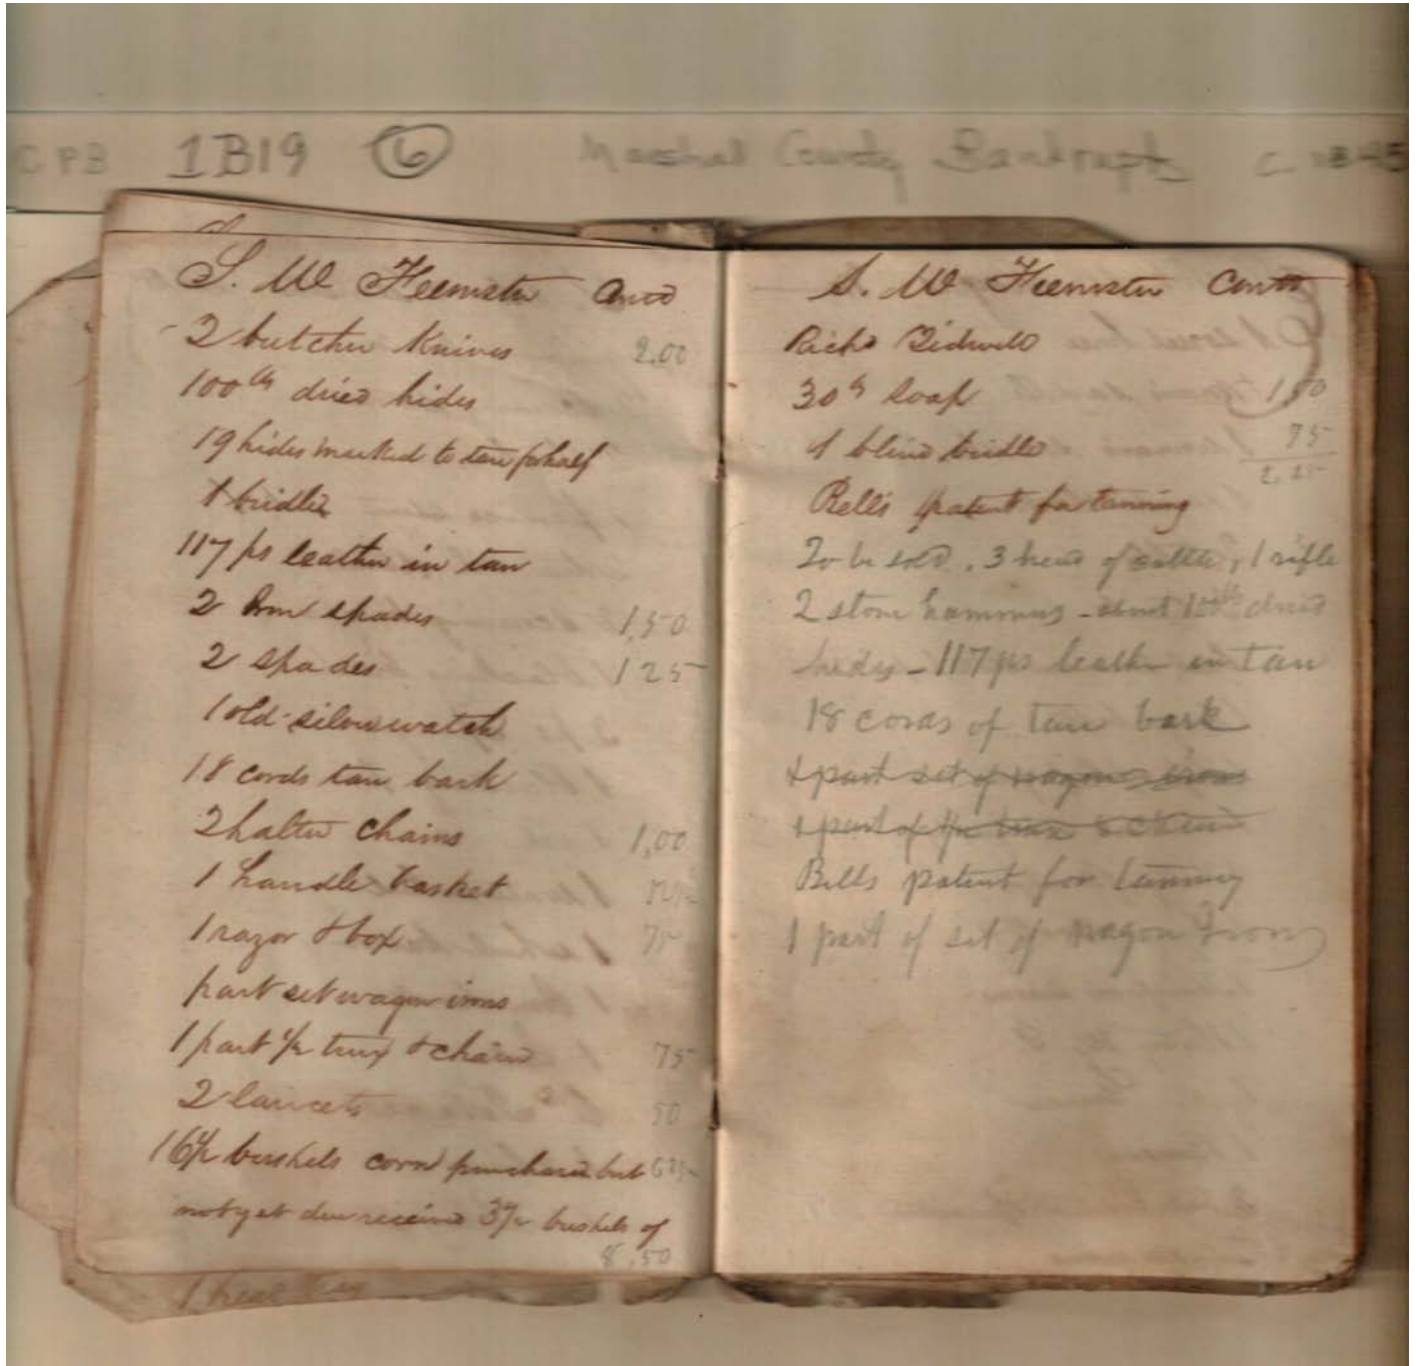 CPB 1B19 6 Marshal County Bankrupts
S. W. Feemster Contd
2 butcher Knives 2.00
100 lb dried hides
19 hides marked to tan for half
1 bridle
117 ps leather in tan
2 spades 1,50
2 spades 125
1 old silver watch
18 cords tan bark
2 halter chains 1,00
1 handle basket
1 razor & box 75
part set wagon irons
1 part chain 75
2 lancets 50
16½ bushels corn purchased but
not yet due received 3½ bushels of
8,50
S. W. Feemster Contd
Richd Bidwell
30 lb Soap 150
1 blind bridle 75
2,25
Bells patent for tanning
To be sold, 3 head of cattle, 1 rifle
2 stone hammers - about 100 lb dried
hides - 117 ps leather in tan
18 cords of tan bark
1 part set of wagon irons
1 part of & chain
Bells patent for tanning
1 part of set of wagon Irons